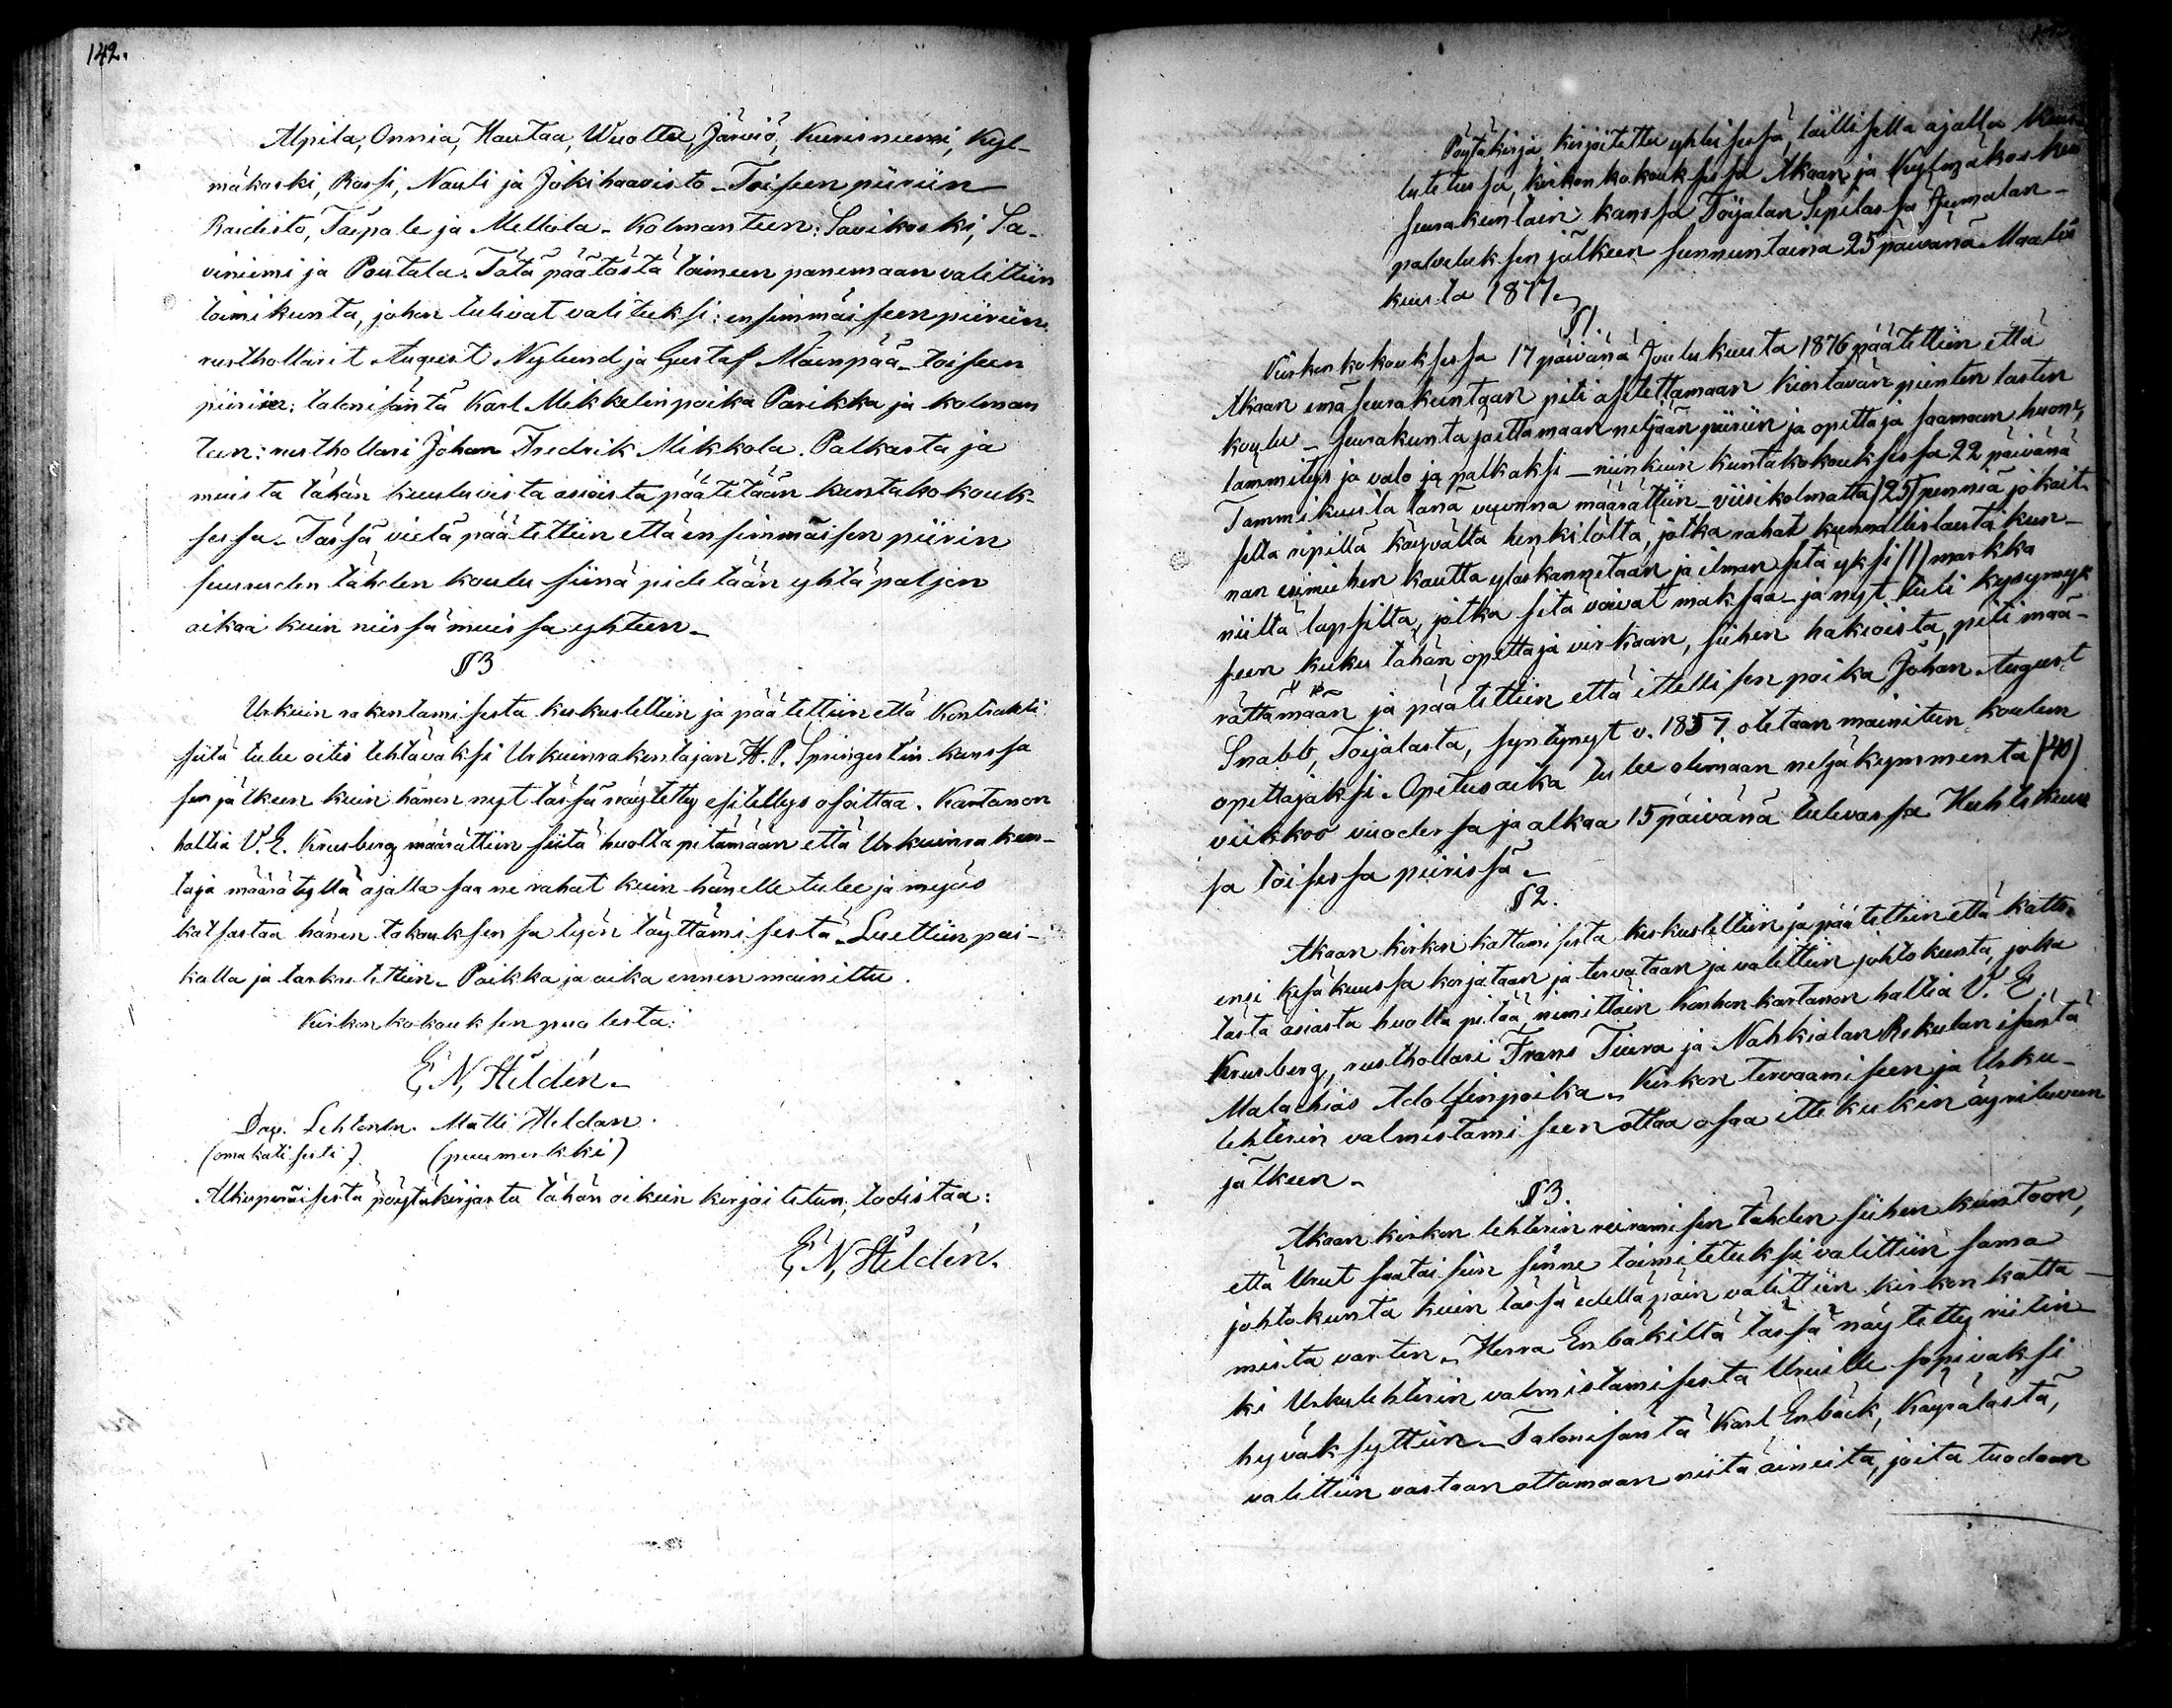 142.
Alpila, Onnia, Hautaa, Wuoltee, Järviö, Kurisniemi, Kyl-
mäkoski, Rassi, Nauli ja Jokihaavisto - Toiseen piiriin
Raidisto, Taipale ja Mellola - Kolmanteen: Savikoski, Sa-
viniemi ja Poutala. Tätä päätöstä toimeen panemaan valittiin
toimikunta, johon tulivat valituksi: ensimmäiseen piiriin:
rusthollarit August Nylund ja Gustaf Mäenpää - toiseen
piiriin: talonisäntä Karl Mikkelinpoika Parikka ja kolman
teen: rusthollari Johan Fredrik Mikkola. Palkasta ja
muista tähän kuuluvista asioista päätetään kuntakokouk-
sessa - Tässä vielä päätettiin että ensimmäisen piirin
suuruden tähden koulu siinä pidetään yhtä paljon
aikaa kuin niissä muissa yhteen -
§ 3
Urkuin rakentamisesta keskusteltiin ja päätettiin että Kontrahti
siitä tulee oitis tehtäväksi Urkuinrakentajan H. P. Springertin kanssa
sen jälkeen kuin hänen nyt tässä näytetty esitellys osoittaa. Kartanon
haltia V. E. Krusberg määrättiin siitä huolta pitämään että Urkuinraken-
taja määrätyllä ajalla saa ne rahat kuin hänelle tulee ja myös
katsastaa hänen takauksensa työn täyttämisestä - Luettiin pai-
kalla ja tarkistettiin - Paikka ja aika ennen mainittu.
Kirkonkokouksen puolesta:
E, N, Hildén -
Dav. Lehtonen. Matti Heldan.
(omakätisesti). (puumerkki)
Alkuperäisestä pöytäkirjasta tähän oikein kirjoitetun, todistaa:
E, N, Hildén.
Pöytäkirja, kirjoitettu yhteisessä, laillisella ajalla kuu-
lutetussa, kirkonkokouksessa Akaan ja Kylmäkosken
seurakuntain kanssa Toijalan Sepilässä Jumalan-
palveluksen jälkeen sunnuntaina 25 päivänä Maalis
kuusta 1877 -
§ 1.
Kirkonkokouksessa 17 päivänä Joulukuusta 1876 päätettiin että
Akaan emäseurakuntaan piti asetettamaan kiertävän pienten lasten
koulu - seurakunta jaettamaan neljään piiriin ja opettaja saamaan huone,
lämmitys ja valo ja palkaksi - niinkuin kuntakokouksessa 22 päivänä
Tammikuusta tänä vuonna määrättiin - viisikolmatta (25) penniä jokait
sella ripillä käyvältä henkilöltä, jotka rahat kunnallislauta kun-
nan esimiehen kautta ylöskannetaan ja ilman sitä yksi (1) markka
niiltä lapsilta, jotka sitä voivat maksaa - ja nyt tuli kysymyk
seen kuka tähän opettaja virkaan, siihen hakioista, piti mää-
rättämään ja päätettiin että itellisen poika Johan August
Snabb, Toijalasta, syntynyt v. 1857, otetaan mainitun koulun
opettajaksi. Opetusaika tulee olemaan neljäkymmentä (40)
viikkoo vuodessa ja alkaa 15 päivänä tulevassa Huhtikuus
sa toisessa piirissä -
§ 2.
Akaan kirkon kattamisesta keskusteltiin ja päätettiin että katto
ensi kesäkuussa korjataan ja tervataan ja valittiin johtokunta, joka
tästä asiasta huolta pitää, nimittäin Konhon kartanon haltia V. E.
Krusberg, rusthollari Frans Tiura ja Nahkialan Rekulan isäntä
Malachias Adolfinpoika - Kirkon tervaamiseen ja Urku-
lehterin valmistamiseen ottaa osaa itte kukin äyriluvun
jälkeen -
§ 3.
Akaan kirkon lehterin reiramisen tähden siihen kuntoon,
että Urut saataisiin sinne toimitetuksi valittiin sama
johtokunta kuin tässä edelläpäin valittiin kirkon katta-
mista varten - Herra Enbäkiltä tässä näytetty riitin-
ki Urkulehterin valmistamisesta Uruille sopivaksi
hyväksyttiin - Talonisäntä Karl Enbäck, Käpälästä,
valittiin vastaanottamaan niitä aineita, joita tuodaan